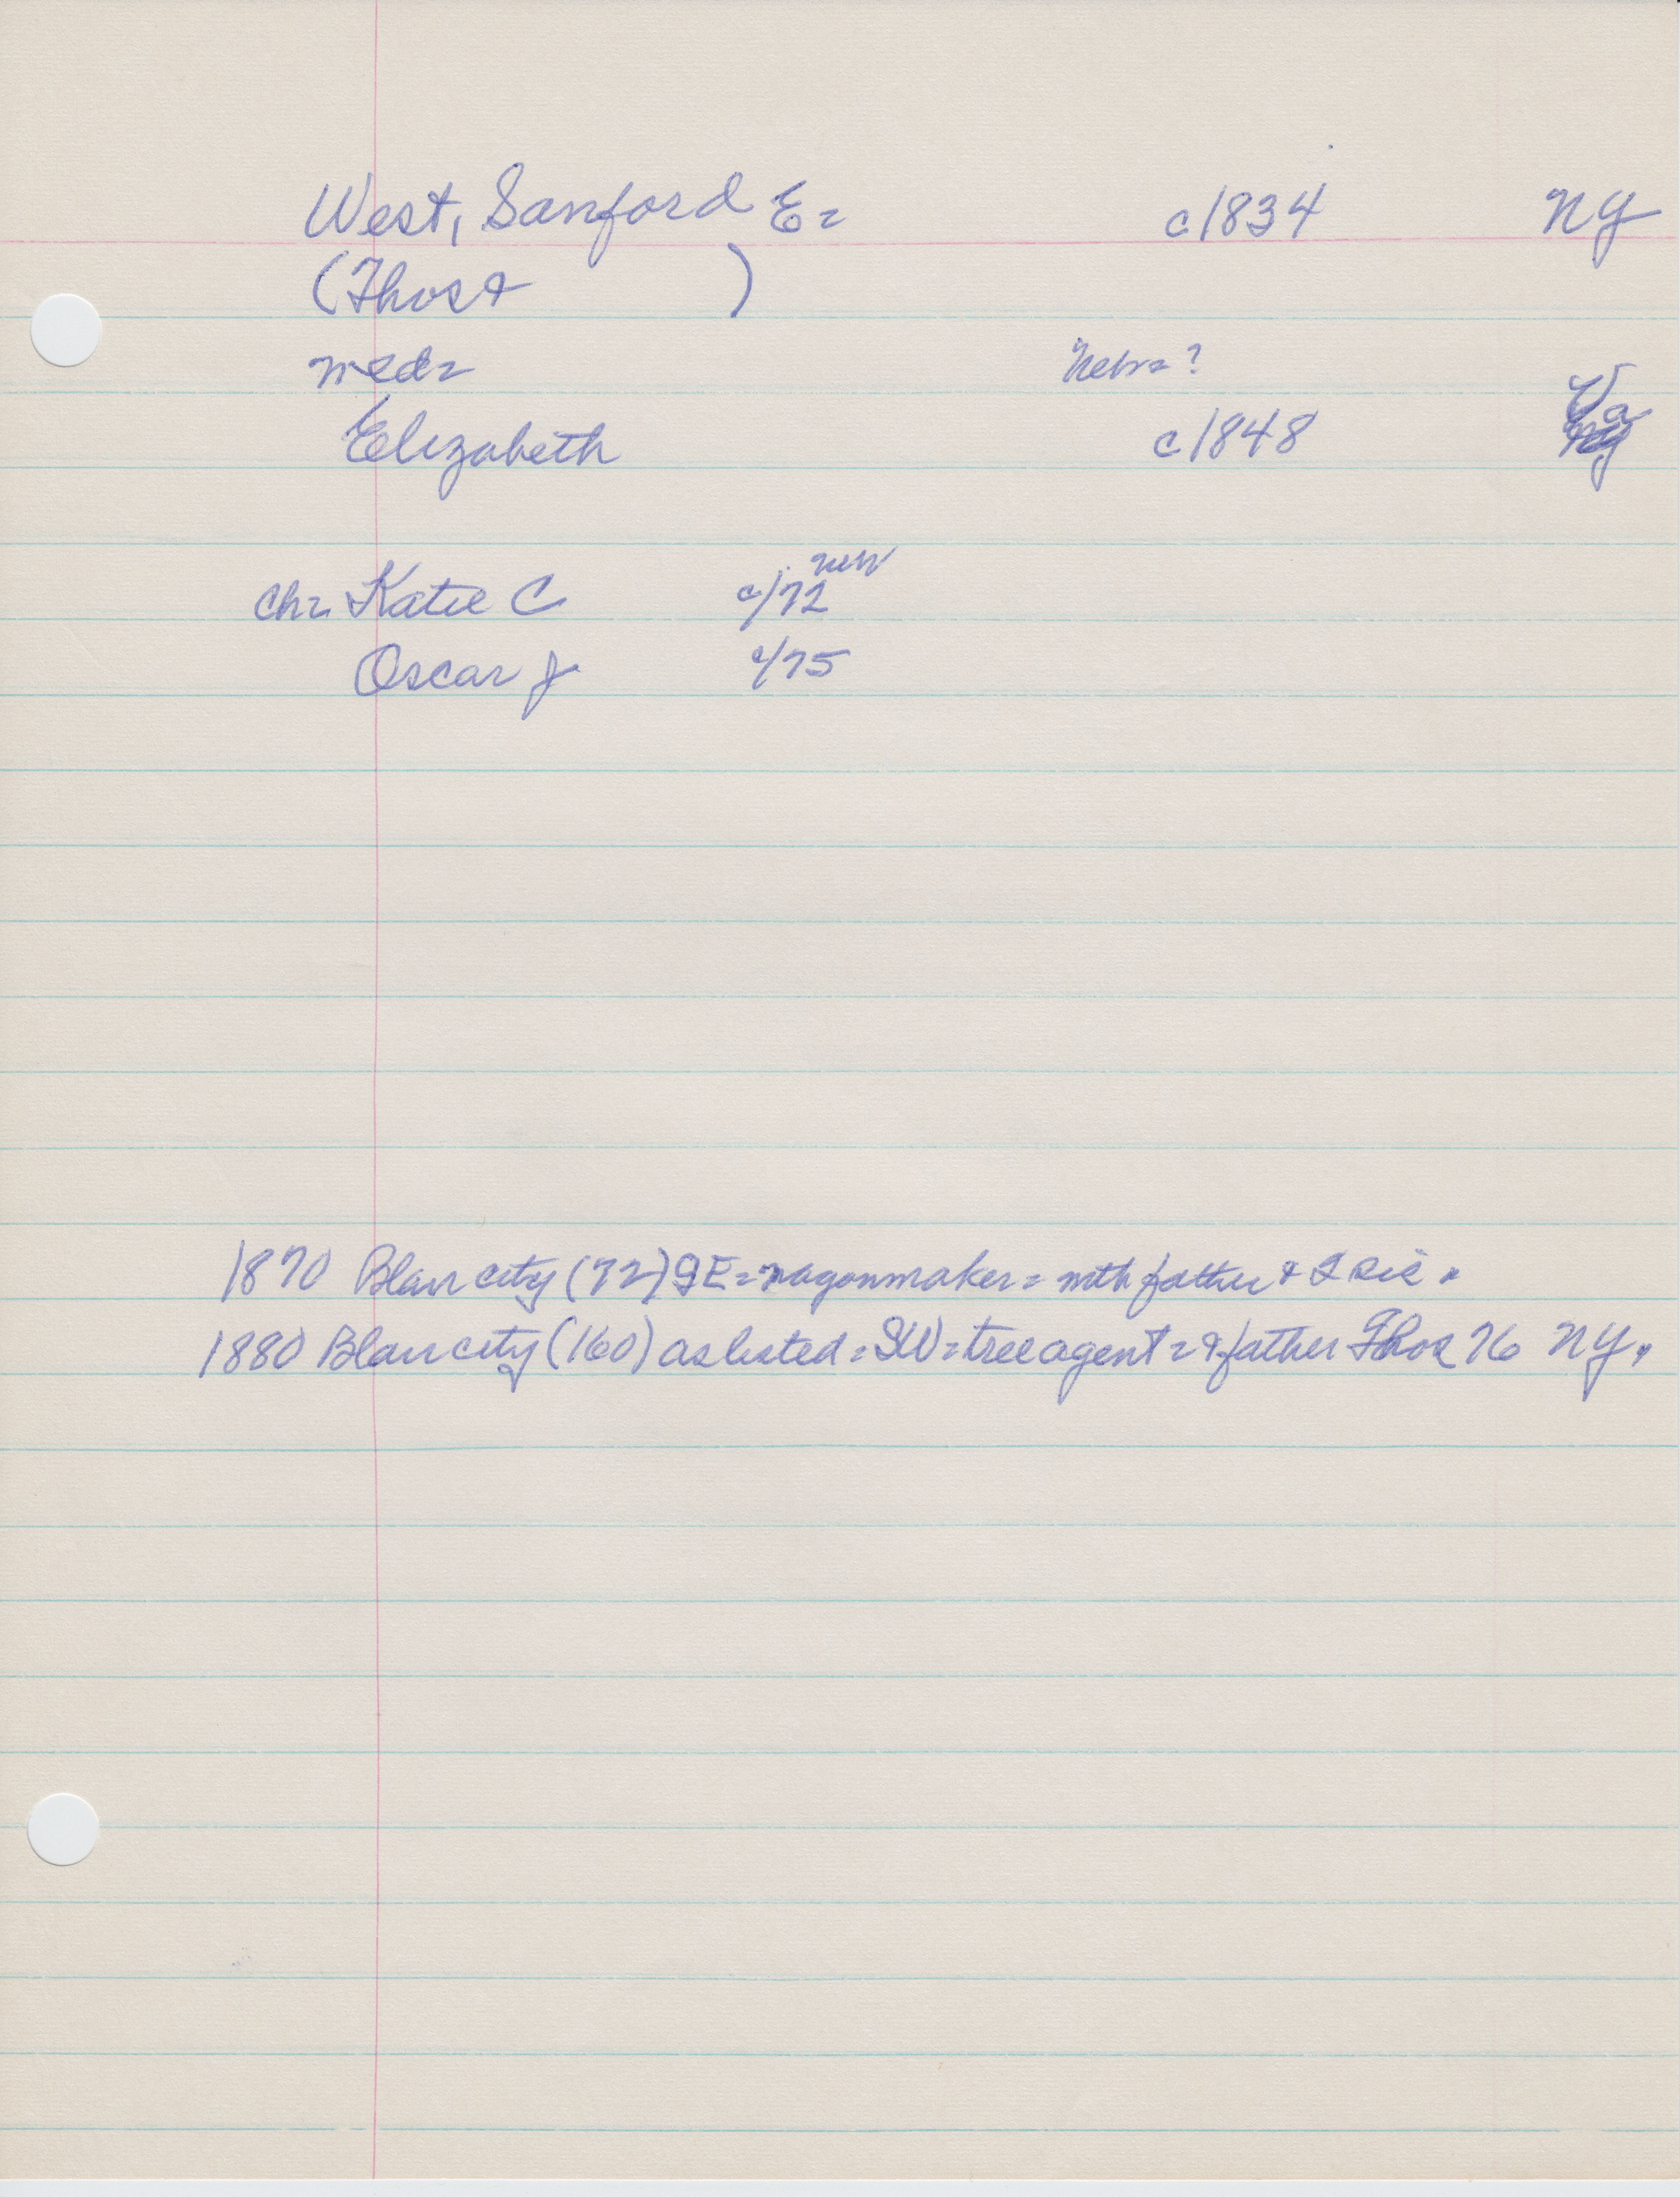 West, Sanford E= c1834 NY
(Thos & )
med= Nebr= ?
Elizabeth c1848 Va
ch= Katie C c/72 neb
Oscar J c/75
1870 Blair city (72) SE=wagonmaker= with father & I sic.
1880 Blair city (160) as listed=SW=tree agent=&father Thos 76 NY.